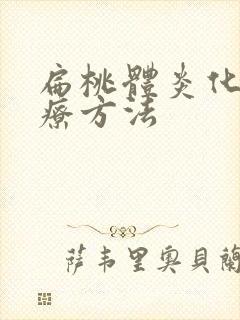 扁桃體炎化
療方法
薩韦里奥貝蘭